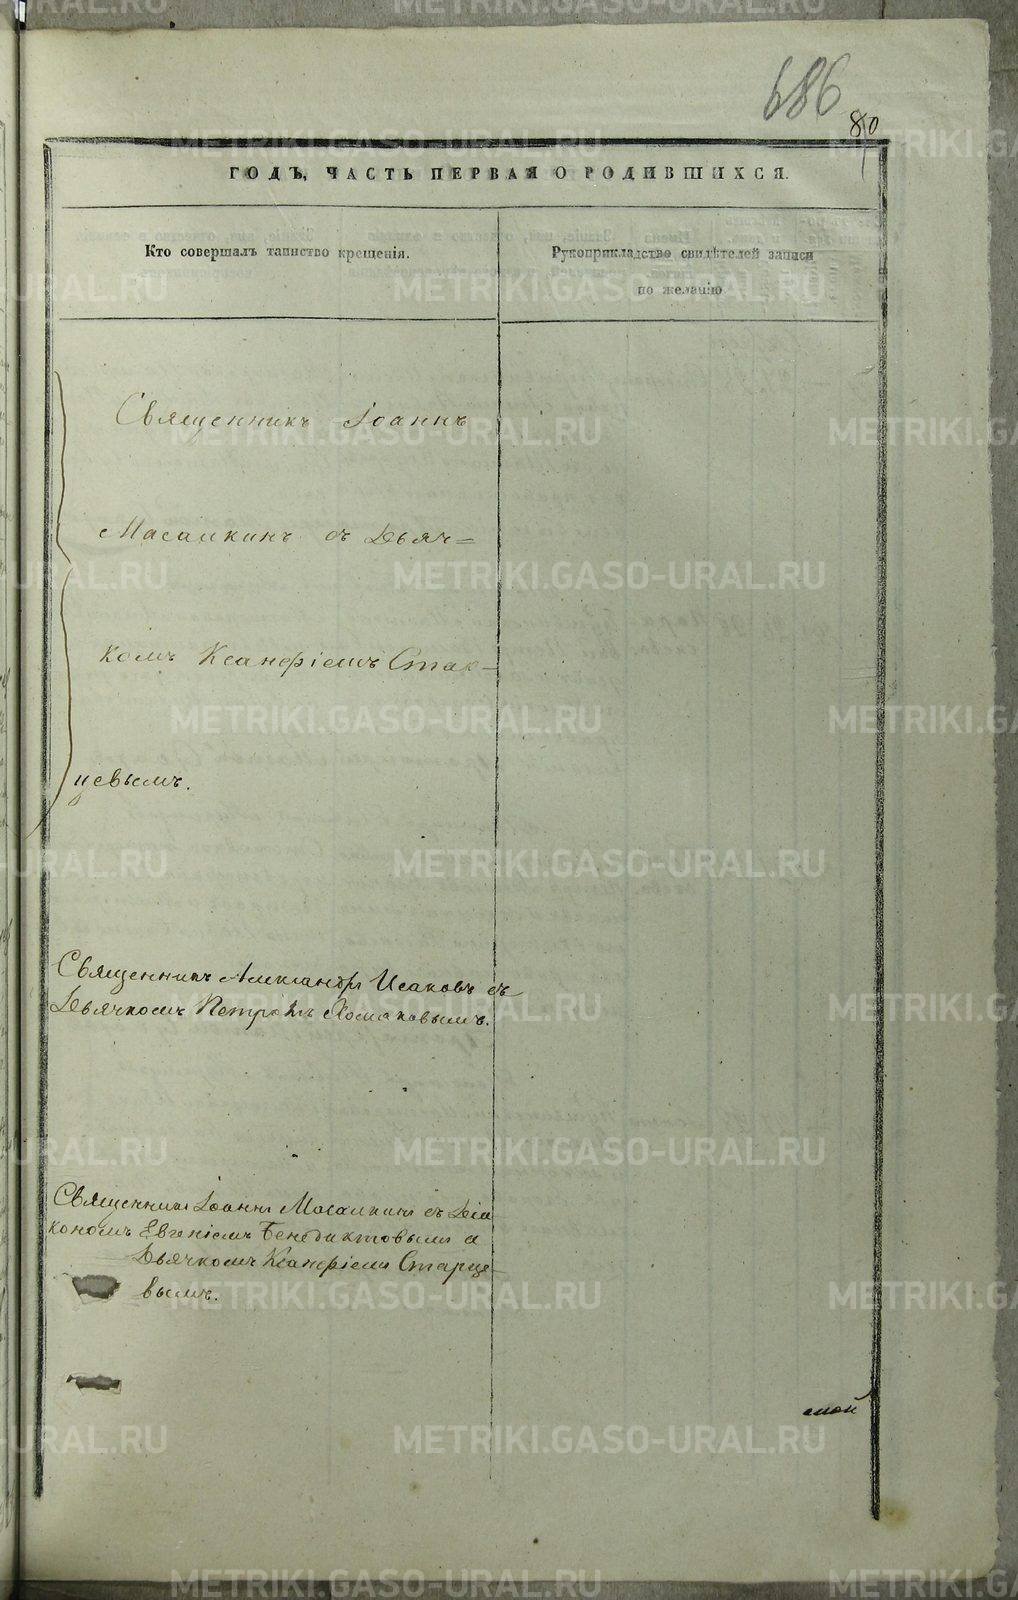 686
80
ГОДЪ, ЧАСТЬ ПЕРВАЯ О РОДИВШИХСЯ.
Кто совершалъ таинство крещенія.
Рукоприкладство свидѣтелей записи
по желанію
Священникъ Іоаннъ
Масалкинъ съ Дьяч=
комъ Ксанфіемъ Стар-
цевымъ.
Священникъ Александръ Исаковъ съ
Дьячкомъ Петромъ Хомяковымъ.
Священникъ Іоаннъ Масалкинъ съ Діа
кономъ Евгеніемъ Бенедиктовымъ и
Дьячкомъ Ксанфіемъ Старце-
вымъ.
METRIKI.GASO-URAL.RU